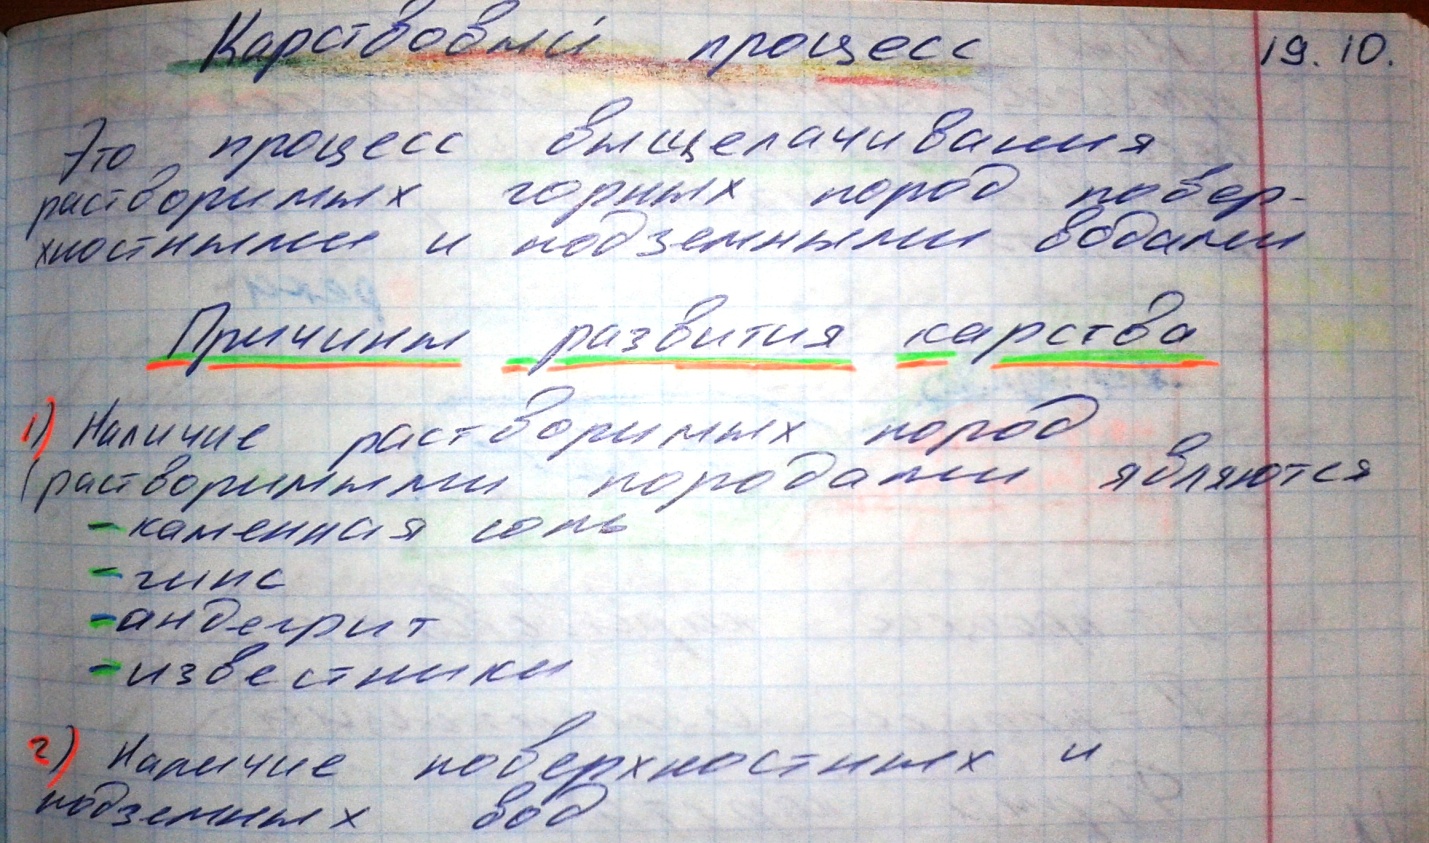 Карстовый процесс 19.10.
Это процесс выщелачивания
растворимых горных пород повер-
хностными и подземными водами
Причины развития карства
1) Наличие растворимых пород
(растворимыми породами являются
- каменная соль
- гипс
- андегрит
- известники
2) Наличие поверхностных и
подземных вод